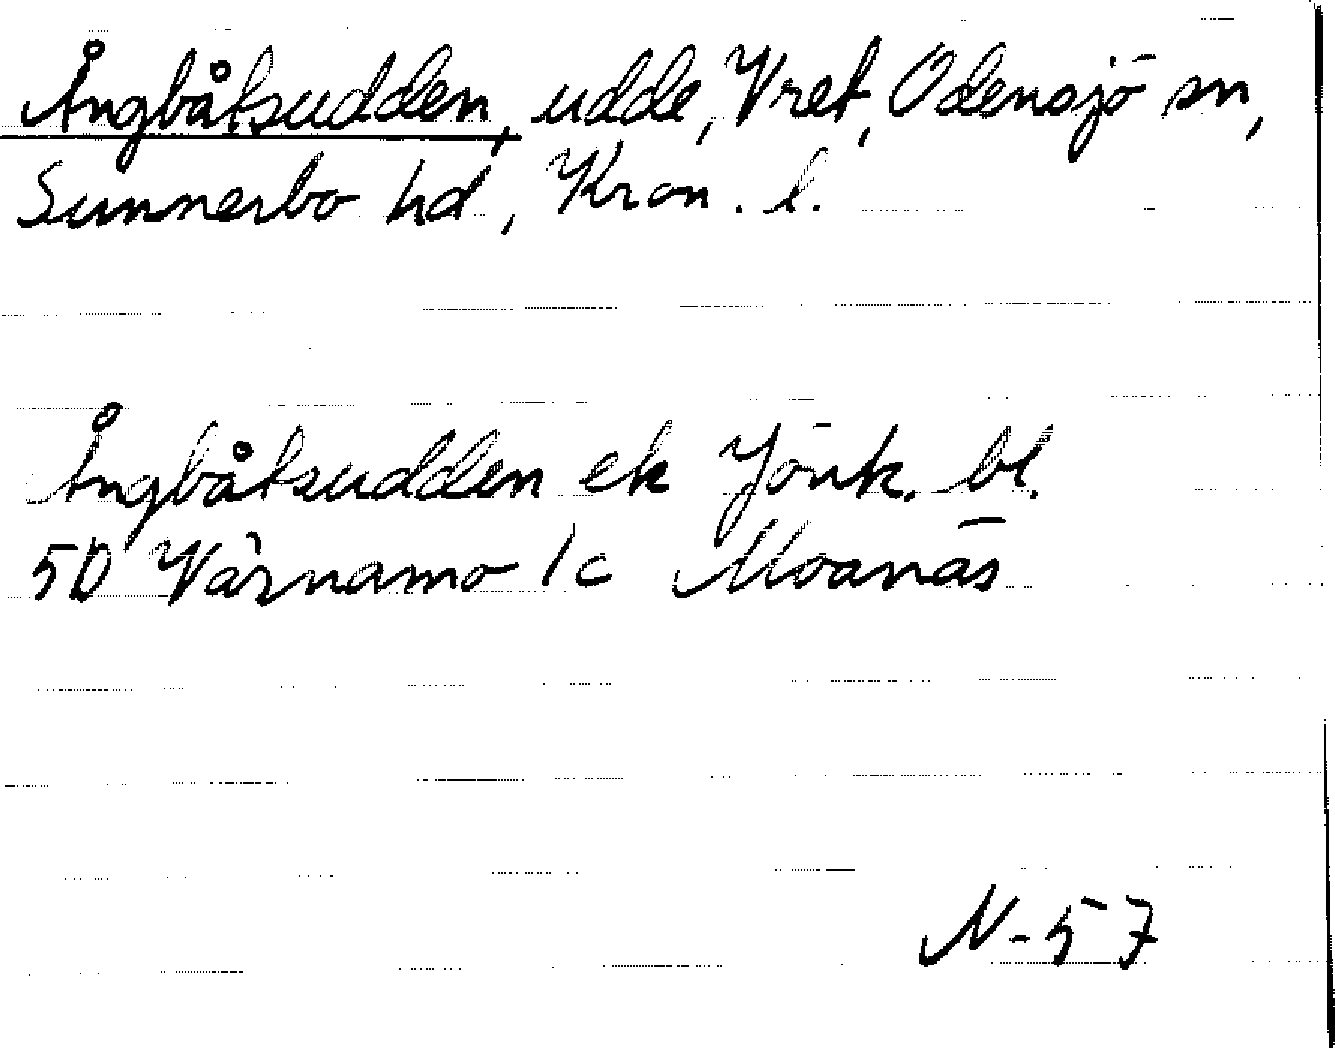 Ångbåtsudden, udde, Vret, Odensjö sn,
Sunnerbo hd, Kron. l.
Ångbåtsudden ek Jönk. bl.
50 Värnamo 1c Moanäs
N-57